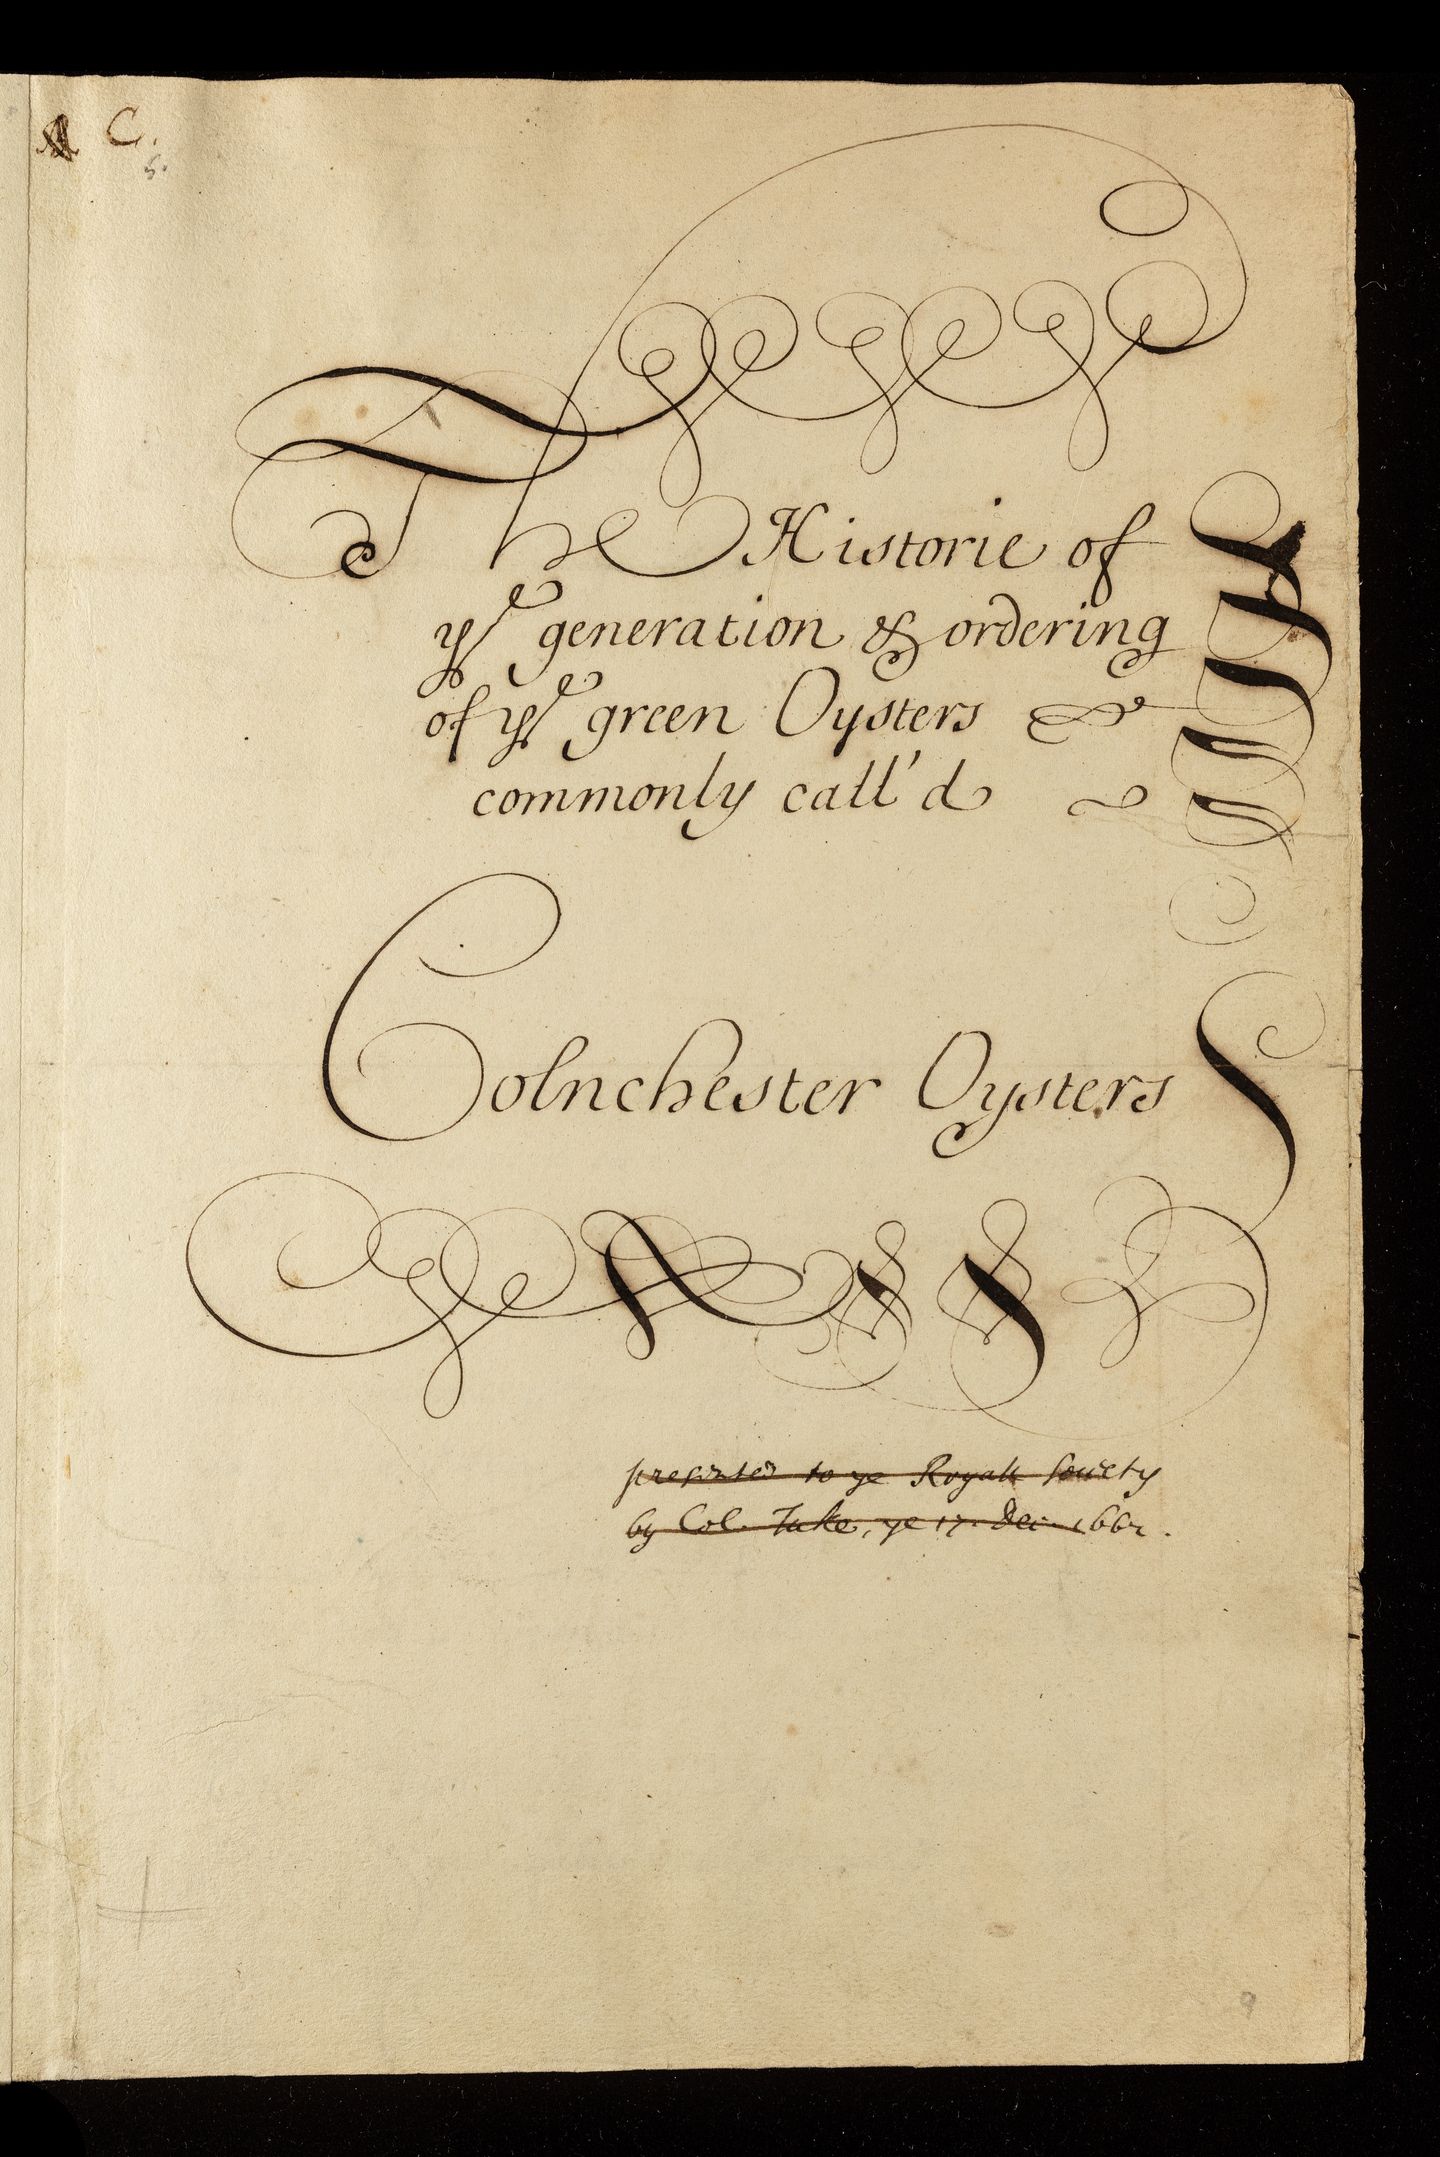 C.
5.
The Historie of
ye generation & ordering
of ye green Oysters
commonly call'd
Colnchester Oysters
presented to ye Royall Society
by Col. Tuke, ye 17. Dec. 1662.
9